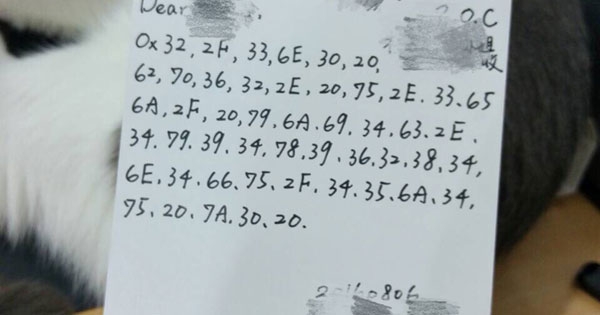 Dear
O.C
收
0x32, 2F, 33, 6E, 30, 20,
62, 70, 36, 32, 2E, 20, 75, 2E. 33. 65
6A, 2F, 20, 79. 6A. 69. 34. 63. 2E.
34. 79. 39. 34. 78. 39. 36. 32. 38. 34,
6E. 34. 66. 75. 2F. 34. 35. 6A. 34,
75. 20. 7A. 30. 20.
20160806